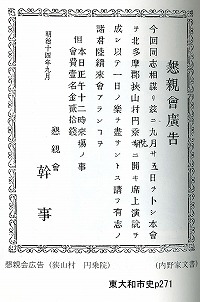 懇親會廣告
今回同志相謀リ玆ニ九月廿五日ヲトシ本會
ヲ北多摩郡狭山村円乗院ニ開キ席上演説ヲ
成シ以テ一日ノ樂ヲ盡サントス請フ有志ノ
諸君陸續來會アランコヲ
但本日正午十二時來場ノ事
會費壹名金貳拾錢
明治十四年九月
懇親會
幹事
懇親会広告(狭山村 円乗院)
(内野家文書)
東大和市史p271